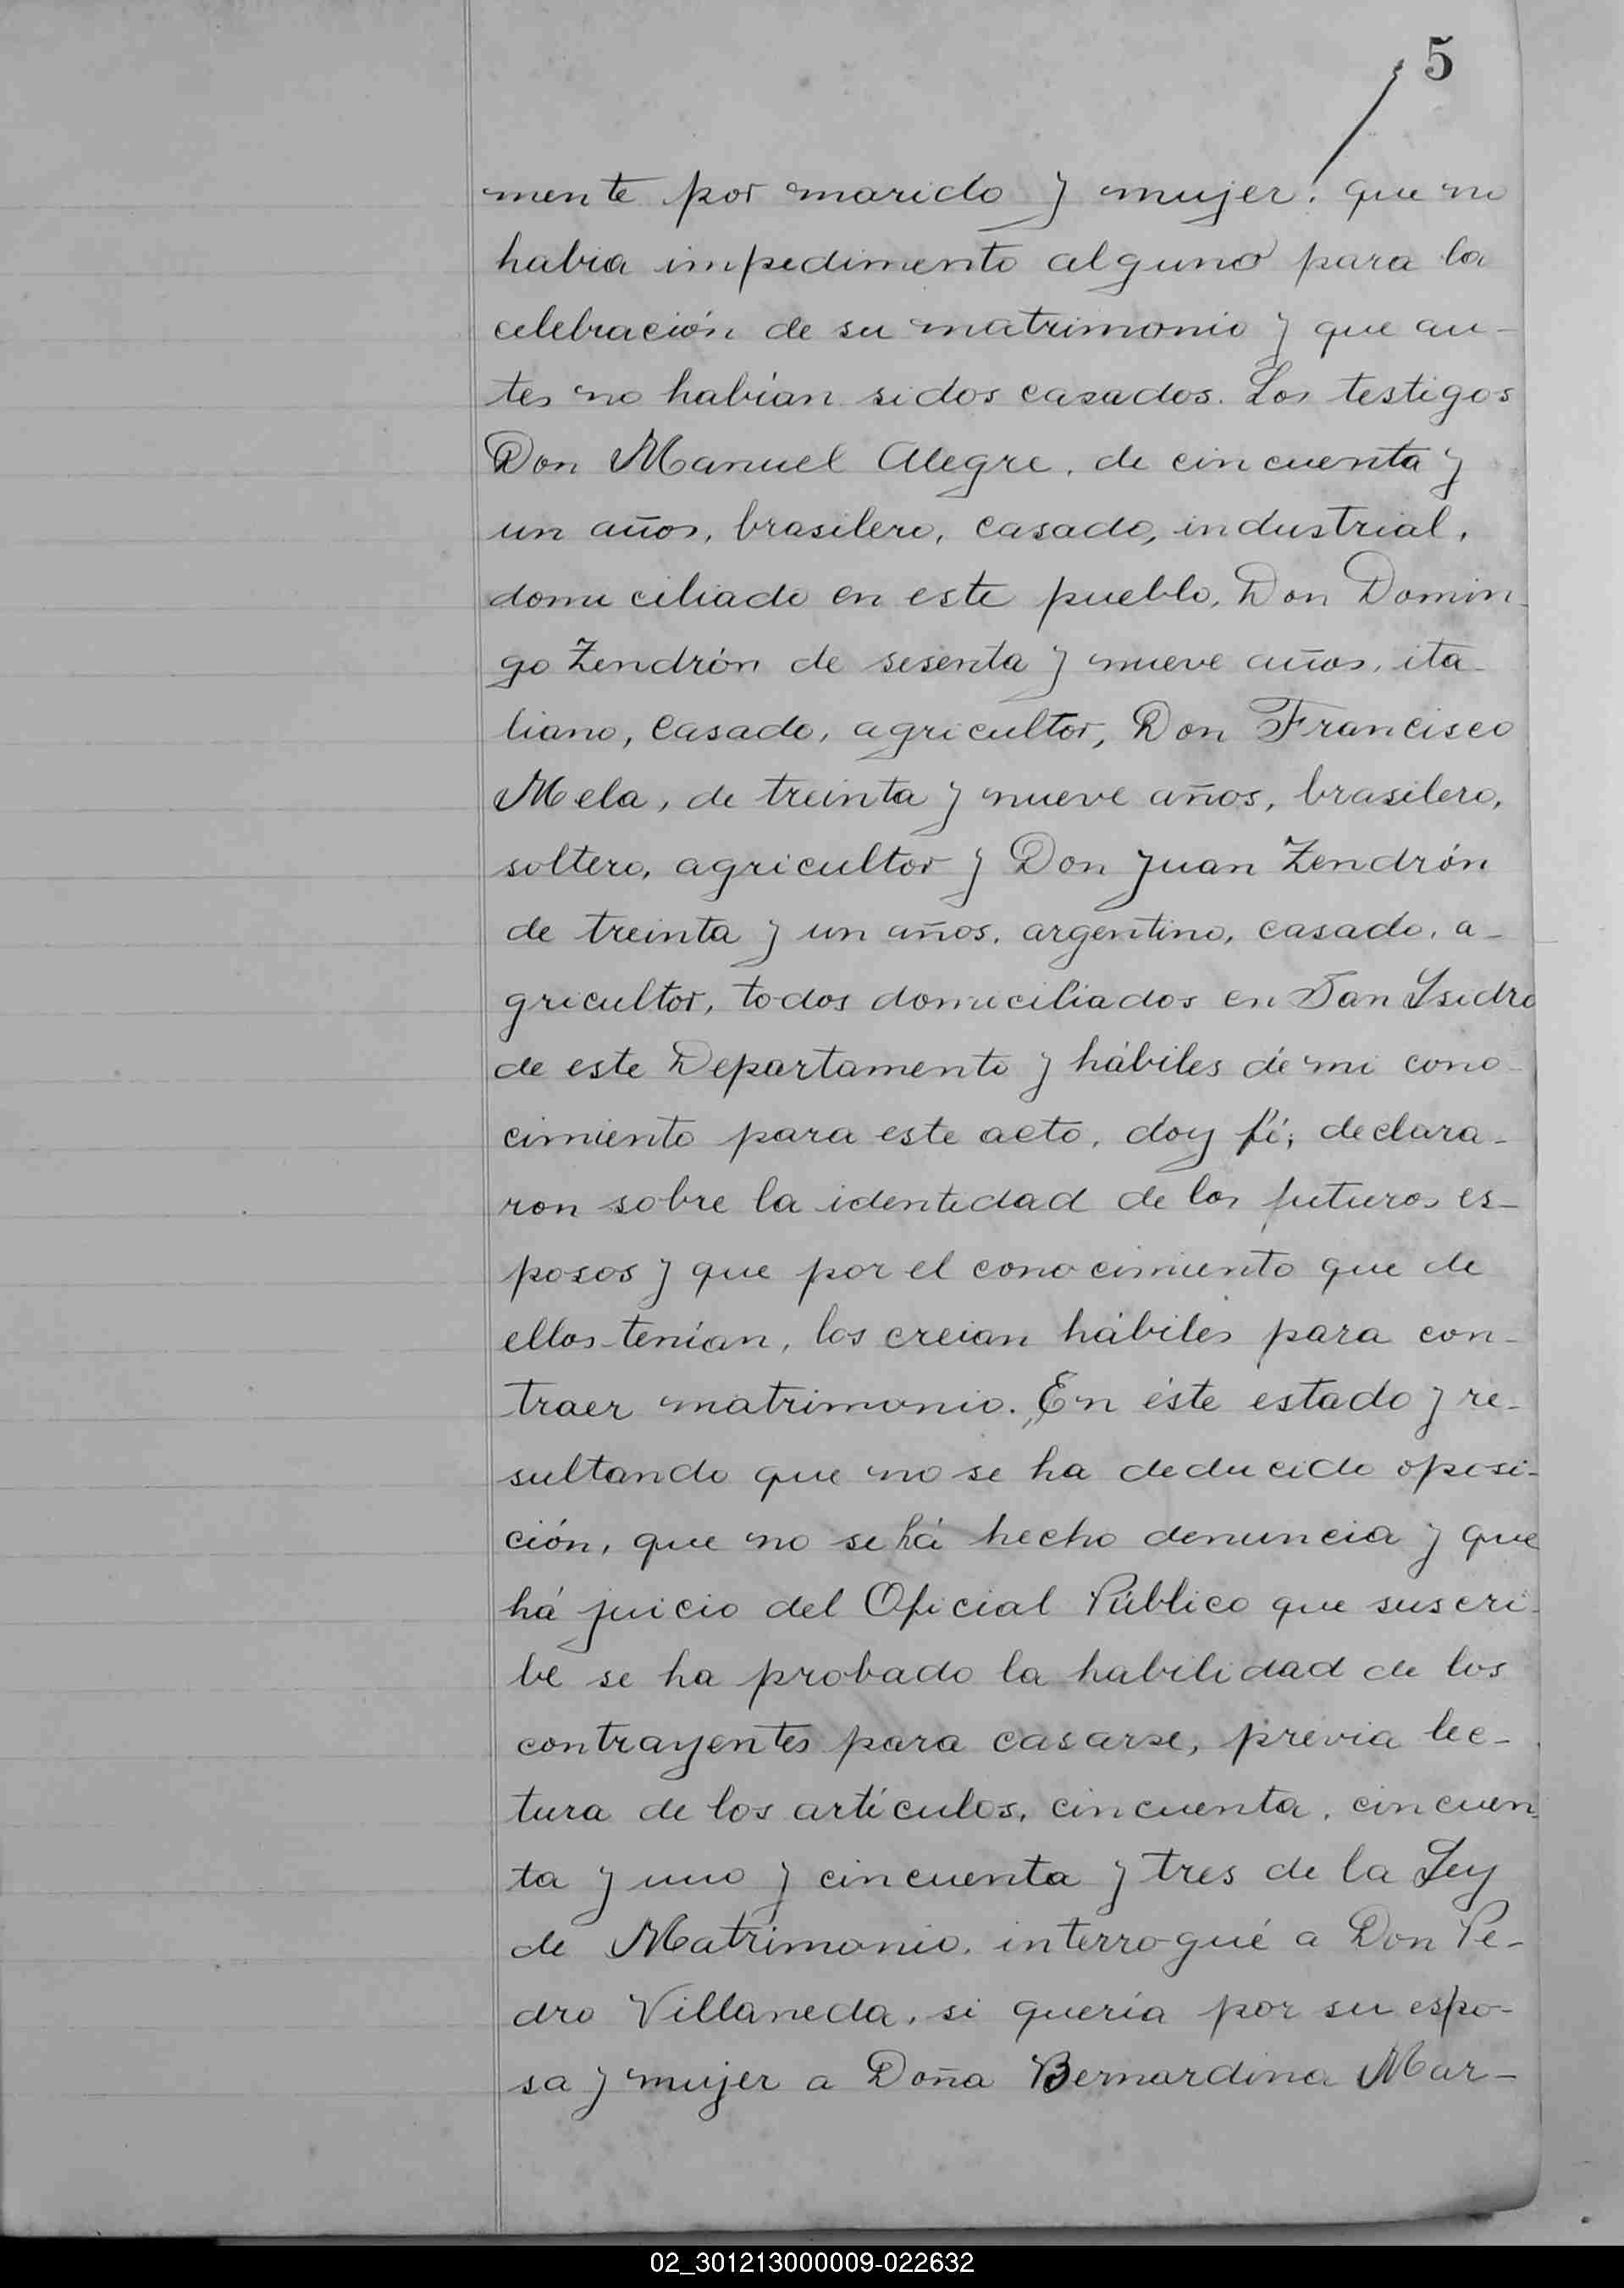 5
mente por marido y mujer. que no
habia impedimento alguno para la
celebración de su matrimonio y que an-
tes no habían sidos casados. Los testigos
Don Manuel Alegre, de cincuenta y
un años, brasilero, casado, industrial,
domiciliado en este pueblo, Don Domin-
go Zendrón de sesenta y nueve años, ita-
liano, casado, agricultor, Don Francisco
Mela, de treinta y nueve años, brasilero,
soltero, agricultor y Don Juan Zendrón
de treinta y un años, argentino, casado, a-
gricultor, todos domiciliados en San Ysidro
de este Departamento y hábiles de mi cono-
cimiento para este acto, doy fé; declara-
ron sobre la identidad de los futuros es-
posos y que por el conocimiento que de
ellos tenían, los creian hábiles para con-
traer matrimonio. En éste estado y re-
sultando que no se ha deducido oposi-
ción, que no se há hecho denuncia y que
há juicio del Oficial Público que suscri-
be se ha probado la habilidad de los
contrayentes para casarse, previa lec-
tura de los artículos, cincuenta, cincuen-
ta y uno y cincuenta y tres de la Ley
de Matrimonio, interrogué a Don Pe-
dro Villaneda, si quería por su espo-
sa y mujer a Doña Bernardina Mar-
02_301213000009-022632